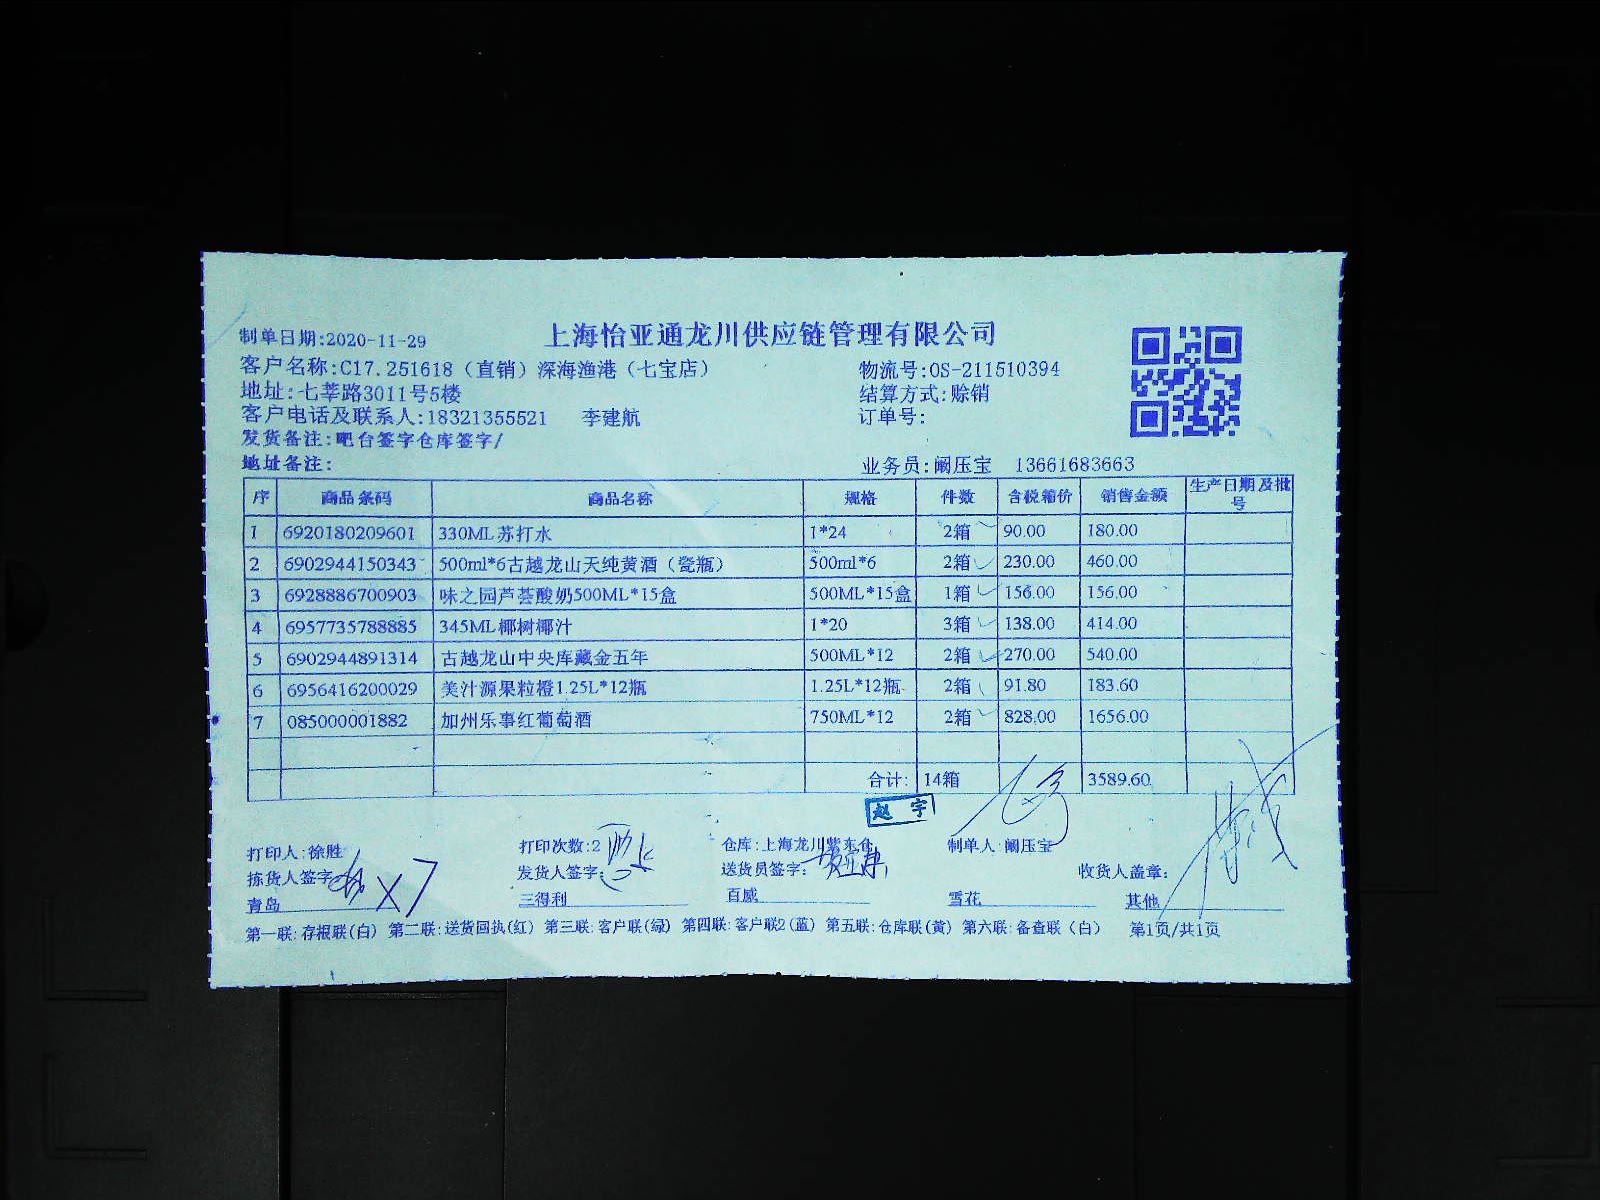 上海怡亚通龙川供应链管理有限公司
制单日期:2020-11-29
客户名称:C17.251618（直销）深海渔港（七宝店） 物流号:OS-211510394
地址:七莘路3011号5楼 结算方式:赊销
客户电话及联系人:18321355521 李建航 订单号:
发货备注:吧台签字仓库签字/
地址备注: 业务员:阚压宝 13661683663
序 商品条码 商品名称 规格 件数 含税箱价 销售金额 生产日期及批号
1 6920180209601 330ML苏打水 1*24 2箱 90.00 180.00
2 6902944150343 500ml*6古越龙山天纯黄酒（瓷瓶） 500ml*6 2箱 230.00 460.00
3 6928886700903 味之园芦荟酸奶500ML*15盒 500ML*15盒 1箱 156.00 156.00
4 6957735788885 345ML椰树椰汁 1*20 3箱 138.00 414.00
5 6902944891314 古越龙山中央库藏金五年 500ML*12 2箱 270.00 540.00
6 6956416200029 美汁源果粒橙1.25L*12瓶 1.25L*12瓶 2箱 91.80 183.60
7 085000001882 加州乐事红葡萄酒 750ML*12 2箱 828.00 1656.00
合计: 14箱 3589.60
赵 宇
打印人:徐胜 打印次数:2 仓库:上海龙川紫东仓 制单人:阚压宝
拣货人签字: 发货人签字: 送货员签字: 收货人盖章:
青岛 三得利 百威 雪花 其他
第一联:存根联(白) 第二联:送货回执(红) 第三联:客户联(绿) 第四联:客户联2(蓝) 第五联:仓库联(黄) 第六联:备查联（白） 第1页/共1页